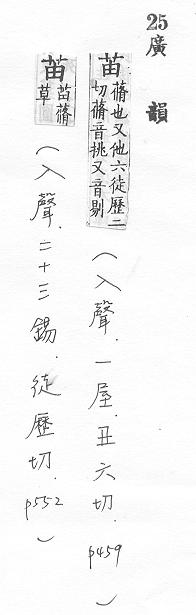 25 廣韻
苖 蓨也又他六徒歷二
切蓨音挑又音剔
（入聲．一屋．丑六切．p459）
苖 苖蓨
草
（入聲．二十三錫．徒歷切．p552）